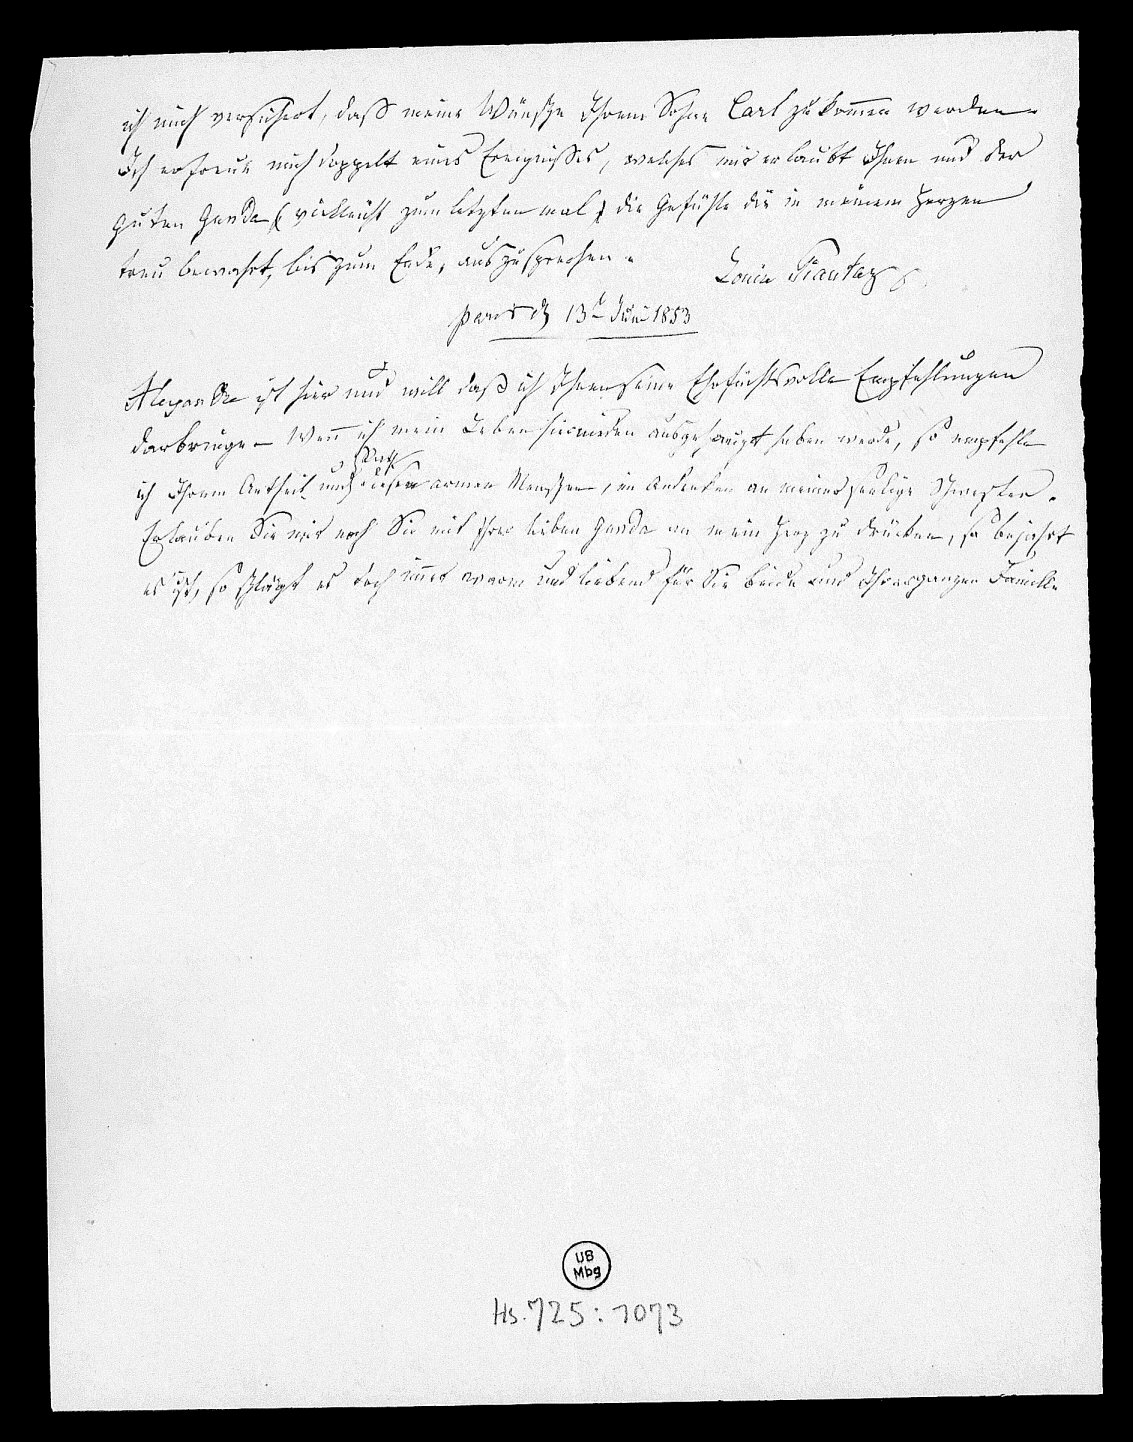 ich mich versichert, daß meine Wünsche Ihrem Sohne Carl zukom̄en werden.
Ich erfreue mich doppelt eines Ereignisses, welches mir erlaubt Ihnen und der
guten Gunda (vielleicht zum letzten mal) die Gefühle die in meinem Herzen
treu bewahrt, bis zum Ende, auszusprechen.
Louise
Paris d 13t Juni 1853
Alexander ist hier und will daß ich Ihnen seine Ehrfurchtsvolle Empfehlungen
darbringe – Wen̄ ich mein Leben hienieden ausgehaucht haben werde, so empfehle
ich Ihrem Antheil und diesen armen Menschen, im Andenken an meine seelige Schwester.
Erlauben Sie mir noch Sie mit Ihrer lieben Gunda an mein Herz zu drücken, so bejahrt
es ist, so schlägt es doch im̄er warm und liebend für Sie beide und Ihrer ganzen Familie
UB
Mbg
Hs. 725:1073